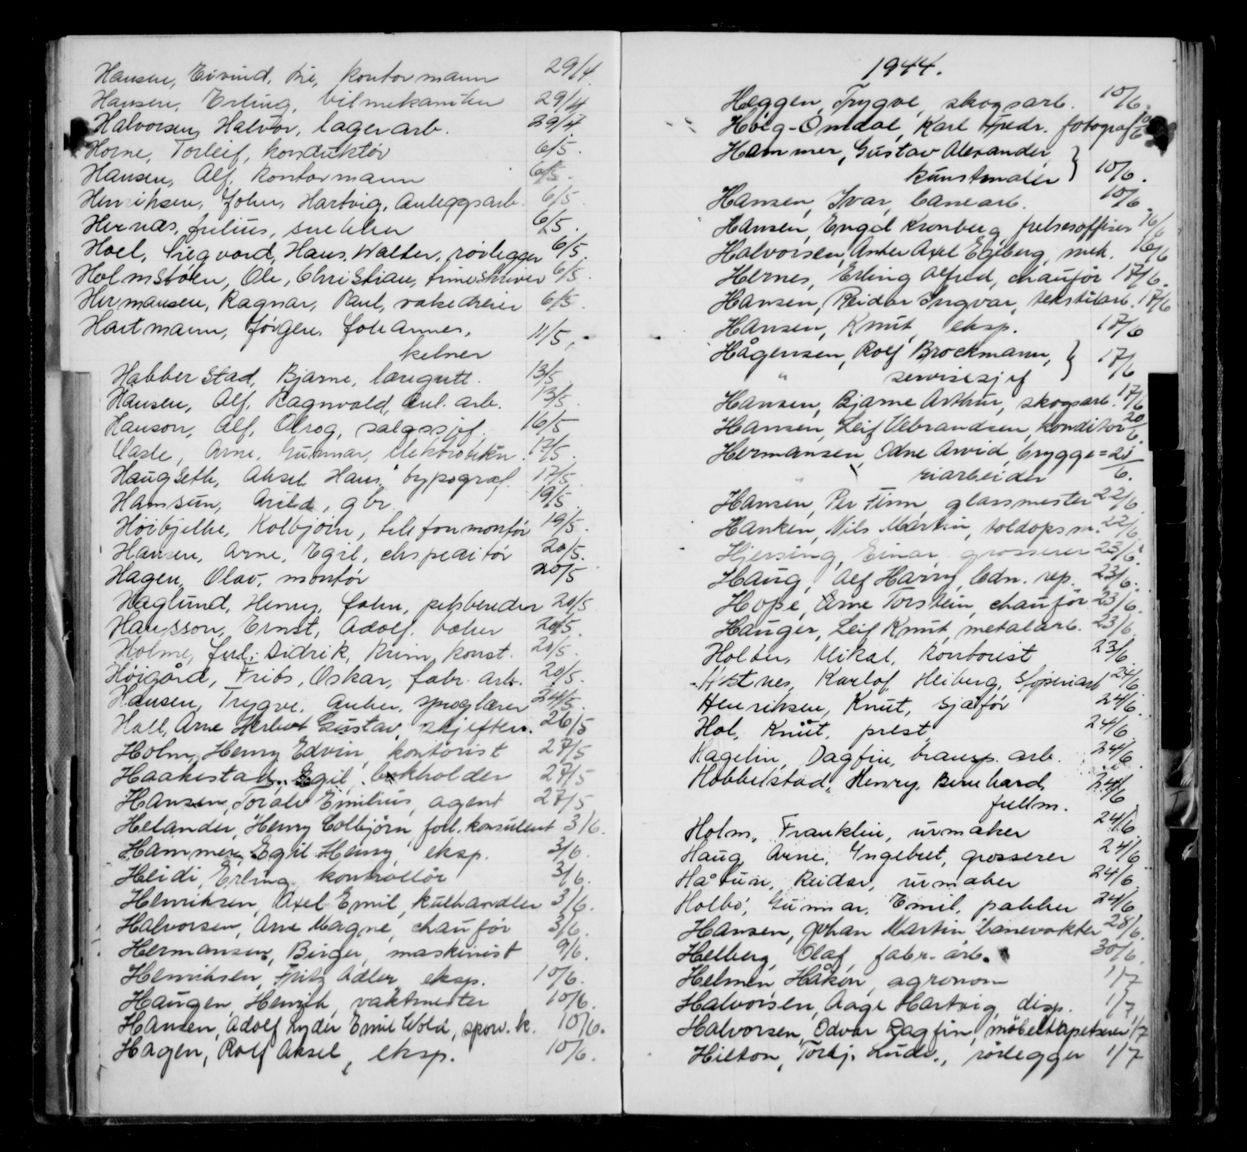 Hansen, Eivind, kontormann 29/4.
Hansen, Erling, bilmekaniker 29/4
Halvorsen, Halvor, lagerarb. 29/4
Horne, Torleif, konduktör 6/5.
Hansen, Alf, kontormann 6/5.
Henriksen, John, Hartvig, anleggsarb. 6/5.
Hernæs, Julius, snekker 6/5.
Hoel, Sigvard, Hans, Walter, rörlegger 6/5.
Holmstöen, Ole, Christian, timeskriver 6/5.
Hermansen, Ragnar, Paul, valsedreier 6/5.
Hartmann, Jörgen, Johannes,
kelner 11/5.
Habberstad, Bjarne, læregutt. 13/5
Hansen, Alf, Ragnvald, anl. arb. 13/5.
Hanson, Alf, salgssjef, 16/5
Arne, Gunnar, 17/5.
Haugseth, Aksel Hans, typograf. 17/5.
Hamsun, Arild, gbr. 19/5
Höibjelke, Kolbjörn, telefonmontör 19/5
Hansen, Arne, Egil, ekspeditör 20/5.
Hagen, Olav, montör 20/5
Haglund, Henry, John, pelsbereder 20/5
Hansson, Ernst, Adolf, baker 20/5.
Holme, Didrik, krim. konst. 20/5.
Höigård, Oskar, fabr. arb. 20/5.
Hansen, Trygve, språklærer 24/5.
Hall, Arne Gustav, skifter. 26/5
Holm, Henry Edvin, kontorist 27/5
Haakestad, Egil, bokholder 27/5
Hansen, Toralf Emilius, agent 27/5
Helander, Henry Colbjörn, konsulent 3/6.
Hammer, Egil Henry, eksp. 3/6.
Heidi, Erling, kontrollör 3/6.
Henriksen, Axel Emil, kulhandler 3/6.
Halvorsen, Arne Magne, chauför 3/6.
Hermansen, Birger, maskinist 9/6.
Henriksen, Fritz Adler, eksp. 10/6.
Haugen, Henrik, vaktmester 10/6.
Hansen, Adolf Ryder Emil Wold, sporv. k. 10/6.
Hagen, Rolf Aksel, eksp. 10/6.
1944.
Heggen, Trygve, skogsarb. 10/6.
Höeg-Omdal, Karl Fredr. fotograf 10/6
Hammer, Gustav Alexander,
kunstmaler 10/6.
Hansen, Ivar, banearb. 10/6
Hansen, Engel Kronberg, frelsesoffiser 16/6
Halvorsen, Anker Axel Egeberg, mek. 16/6
Hernes, Erling Alfred, chauför 17/6.
Hansen, Reidar Ingvar, tekstilarb. 17/6
Hansen, Knut, eksp. 17/6
Hågensen, Rolf Brockmann,
" servisesjef 17/6
Hansen, Bjarne Arthur, skogsarb. 17/6
Hansen, Leif Vebrandsen, konditor 20/6.
Hermansen, Odne Arvid, brygge= 20/6.
" riarbeider
Hansen, Per Finn, glassmester 22/6.
Hanken, Nils Martin, toldopsm. 22/6.
Hjersing, Einar, grosserer 23/6.
Haug, Alf Harry, bdn. rep. 23/6.
Hope, Arne Torstein, chauför 23/6.
Hauger, Leif Knut, metalarb. 23/6.
Holder, Mikal, kontorist 23/6
Karlof Heiberg, 24/6
Henriksen, Knut, sjåför 24/6.
Hol, Knut, prest 24/6.
Hagelin, Dagfin, transp. arb. 24/6.
Hobbelstad, Henry, Bernhard,
fullm. 24/6
Holm, Franklin, urmaker 24/6.
Haug, Arne, Ingebret, grosserer 24/6
Håtun, Reidar, urmaker 24/6
Holbö, Gunnar, Emil, pakker 24/6
Hansen, Johan Martin, banevokter 28/6.
Helberg, Olaf, fabr. arb. 30/6.
Helmen, Håkon, agronom 1/7
Halvorsen, Aage Hartvig, disp. 1/7
Halvorsen, Odvar Dagfin, möbeltapetserer 1/7
Hilton, Torbj. Ludv., rörlegger 1/7